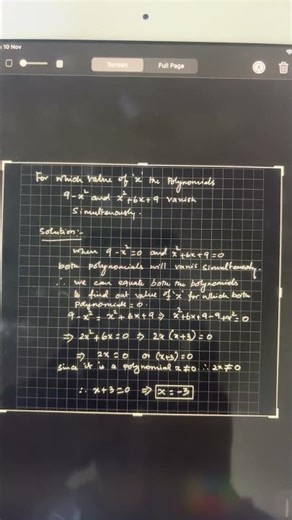 10 Nov
Screen Full Page
For which value of 'x' the Polynomials
9-x² and x²+6x+9 vanish
simultenously.
Solution:-
when 9-x²=0 and x²+6x+9=0
both polynomials will vanis simultenedy.
∴ we can equals both the polynomials
to find out value of 'x' for which both
Polynomials = 0
9-x² = x²+6x+9 ⇒ x²+6x+9-9+x²=0
⇒ 2x²+6x=0 ⇒ 2x(x+3)=0
⇒ 2x=0 or (x+3)=0
since it is a polynomial x≠0 ∴ 2x≠0
∴ x+3=0 ⇒ x=-3